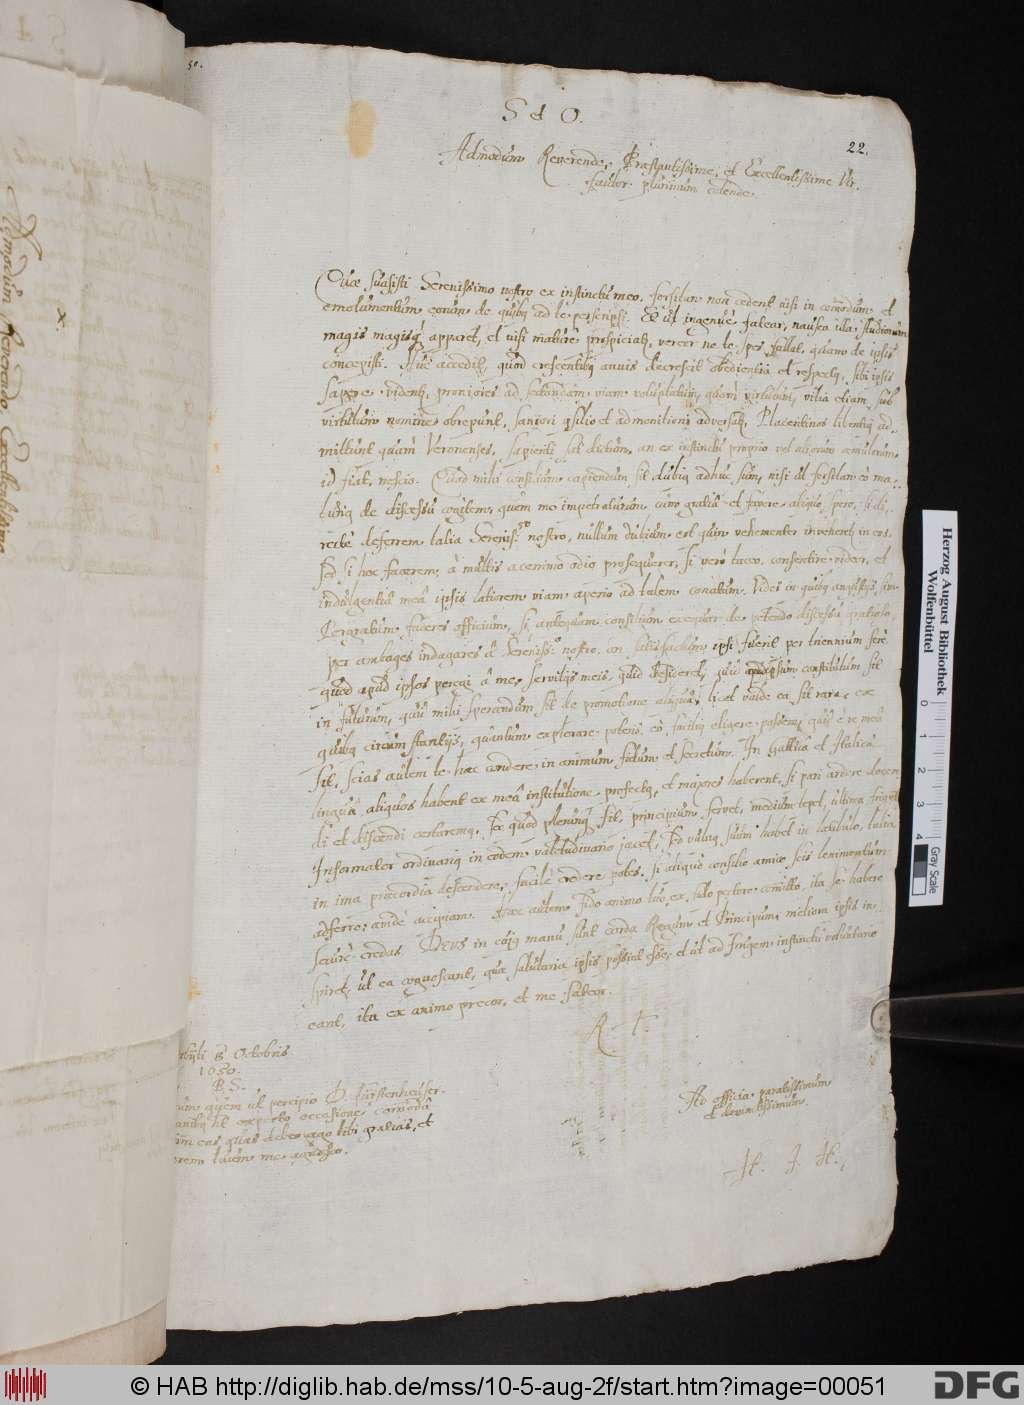 50.
22.
S & O.
Admodum Reverende, Præstantissime, et Excellentissime Vir.
fautor plurimum colende.
Quæ suasisti Serenissimo nostro ex instinctu meo, forsitan non cedent nisi in com̄odum et
emolumentum eorum de quibq ad te perscripsi. Et ut ingenuè fatear, nausea illa studiorum
magis magisq́ apparet, et nisi maturè prospiciatq, vereor ne te spes fallat, quam de ipsis
concepisti. Huc accedit, quod crescentibq annis decrescit obedientia et respectq, sibi ipsis
sapere videntq, proniores ad sectandam viam voluptatum, quàm virtutum, vitia etiam sub
virtutum nomine obrepunt, saniori consilio et admonitioni adversatq, Placentinos libentiq ad-
mittunt quàm Veronenses, sapienti sat dictum, an ex instinctu proprio vel aliorum æmulorum
id fiat, nescio. Quod mihi consilium capiendum sit dubiq adhuc sum, nisi ut forsitan eò ma-
turiq de discessu cogitem, quem me impetraturum cum gratia et favore aliquo spero, si di-
rectè deferrem talia Sereniss. nostro, nullum dubium est quin vehementer inveheret in eos.
Sed si hoc facerem, à multis acerrimo odio prosequerer, si verò taceo, consentire videar, et
indulgentiâ meâ ipsis latiorem viam aperio ad talem conatum. Vides in quibq angustijs sim.
Pergratum faceres officium, si antequam consilium exequar de petendo discessu gratioso,
per ambages indagares à Sereniss: nostro, an satisfactum ipsi fuerit per triennium ferè
quod apud ipsos peregi â me, servitijs meis, quid desideret, quid ipsum constitutum sit
in futurum, quid mihi sperandum sit de promotione aliqua, licet valdè ea sit rara, ex
quibq circumstantijs, quantum explorare poteris, eò faciliq eligere possem, quid è re meâ
sit, scias autem te hæc condere in animum fidum et secretum. In Gallica et Italica
linguâ aliquos habent ex meâ institutione profectq, et majores haberent, si pari ardore docen-
di et discendi certaremq. Sed quod plerunq́ fit, principium fervet, medium tepet, ultima friget
Informator ordinariq in eodem valetudinario jacet, Sed vulnq suum habet in latibulo, talia
in ima præcordia descendere, facilè credere potes. Si aliquo consilio amico scis lenimentum
adferre, avidè accipiam. Hæc autem fido animo tuo ex fido pectore com̄itto, ita se habere
securè credas. Deus in cujq manu sunt corda Regum et Principum, meliora ipsis in-
spiret, ut ea cognoscant, quæ salutaria ipsis possint esse, et ut ad frugem instinctu voluntario
eant, ita ex animo precor, et me fateor.
R. T.
8 Octobris
1650.
P. S.
quem ut percipio D. Fürstenheuser
ut experto occasione com̄odâ
eas quas debeo ago tibi gratias, et
Ad officia paratissimum
et devinctissimum.
H. J. H.
Admodum Reverendo Excellentissimo
Herzog August Bibliothek
Wolfenbüttel
0 1 2 3 4
Gray Scale
© HAB http://diglib.hab.de/mss/10-5-aug-2f/start.htm?image=00051
DFG